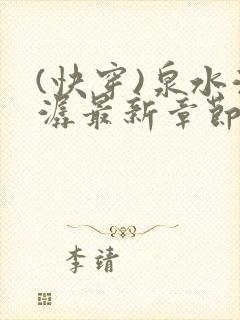 (快穿)泉水
潺最新章节
李靖